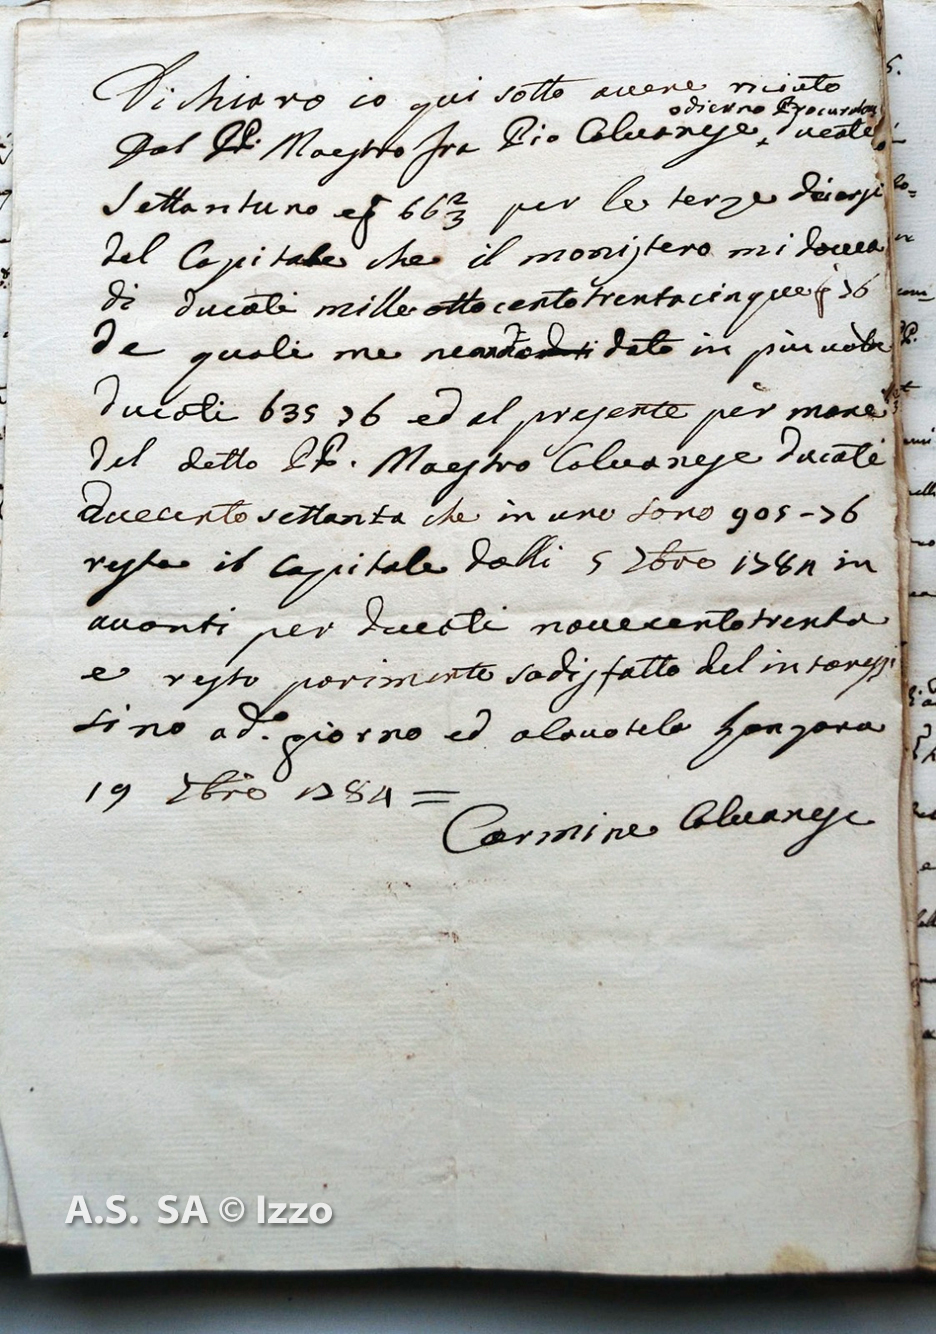 Dichiaro io qui sotto avere riciuto
odierno Procurator
Dal PP. Maestro fra Pio Calvanese + ducati
Settantuno e g 66 2/3 per le terze decorse
del Capitale che il monistero mi doveva
di ducati mille ottocentotrentacinque e g 76
De quali me ne dato in più volte
Ducati 635 76 ed al presente per mano
del detto PP. Maestro Calvanese Ducati
Duecento settanta che in uno sono 905-76
resta il Capitale dalli 5 7bro 1784 in
avanti per ducati novecentotrenta
e resto parimente sadisfatto del interessi
sino a do. giorno ed a
19 7bro 1784 =
Carmine Calvanese
A.S. SA © Izzo